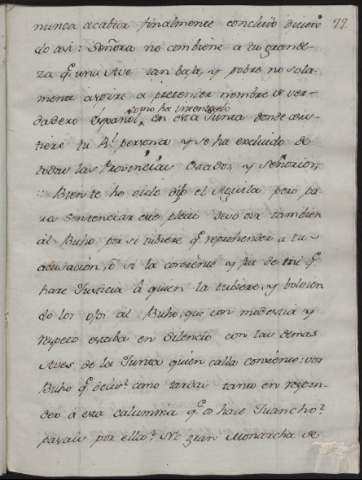 nunca acabia finalmente concluio dicien
do asi: Señora no combiene a tu grande-
za q.e una Ave tan baja, y pobre no sola-
mente aspire a pretender nombre de ver-
como ha intentado
dadero Español, en esta Junta donde asis-
tiere tu R.l persona y se ha excluido de
todas las Provincias Estados, y Señorios,
:: Bien te he oido dijo el Aguila pero pa
ra sentenciar este pleito devo oir tambien
al Buho por si tubiere q.e reprehender a tu
acusacion, ó si la consiente y fie de mi q.e
hare Justicia á quien la tubiere, y bolvien
do los ojos al Buho, que con modestia y
respeto estaba en silencio con las demas
Aves de la Junta quien calla consiente: vos
Buho q.e decis? como tardas tanto en respon-
der á esta calumnia q.e os hace Juancho?
pasais por ella? No gran Monarcha se